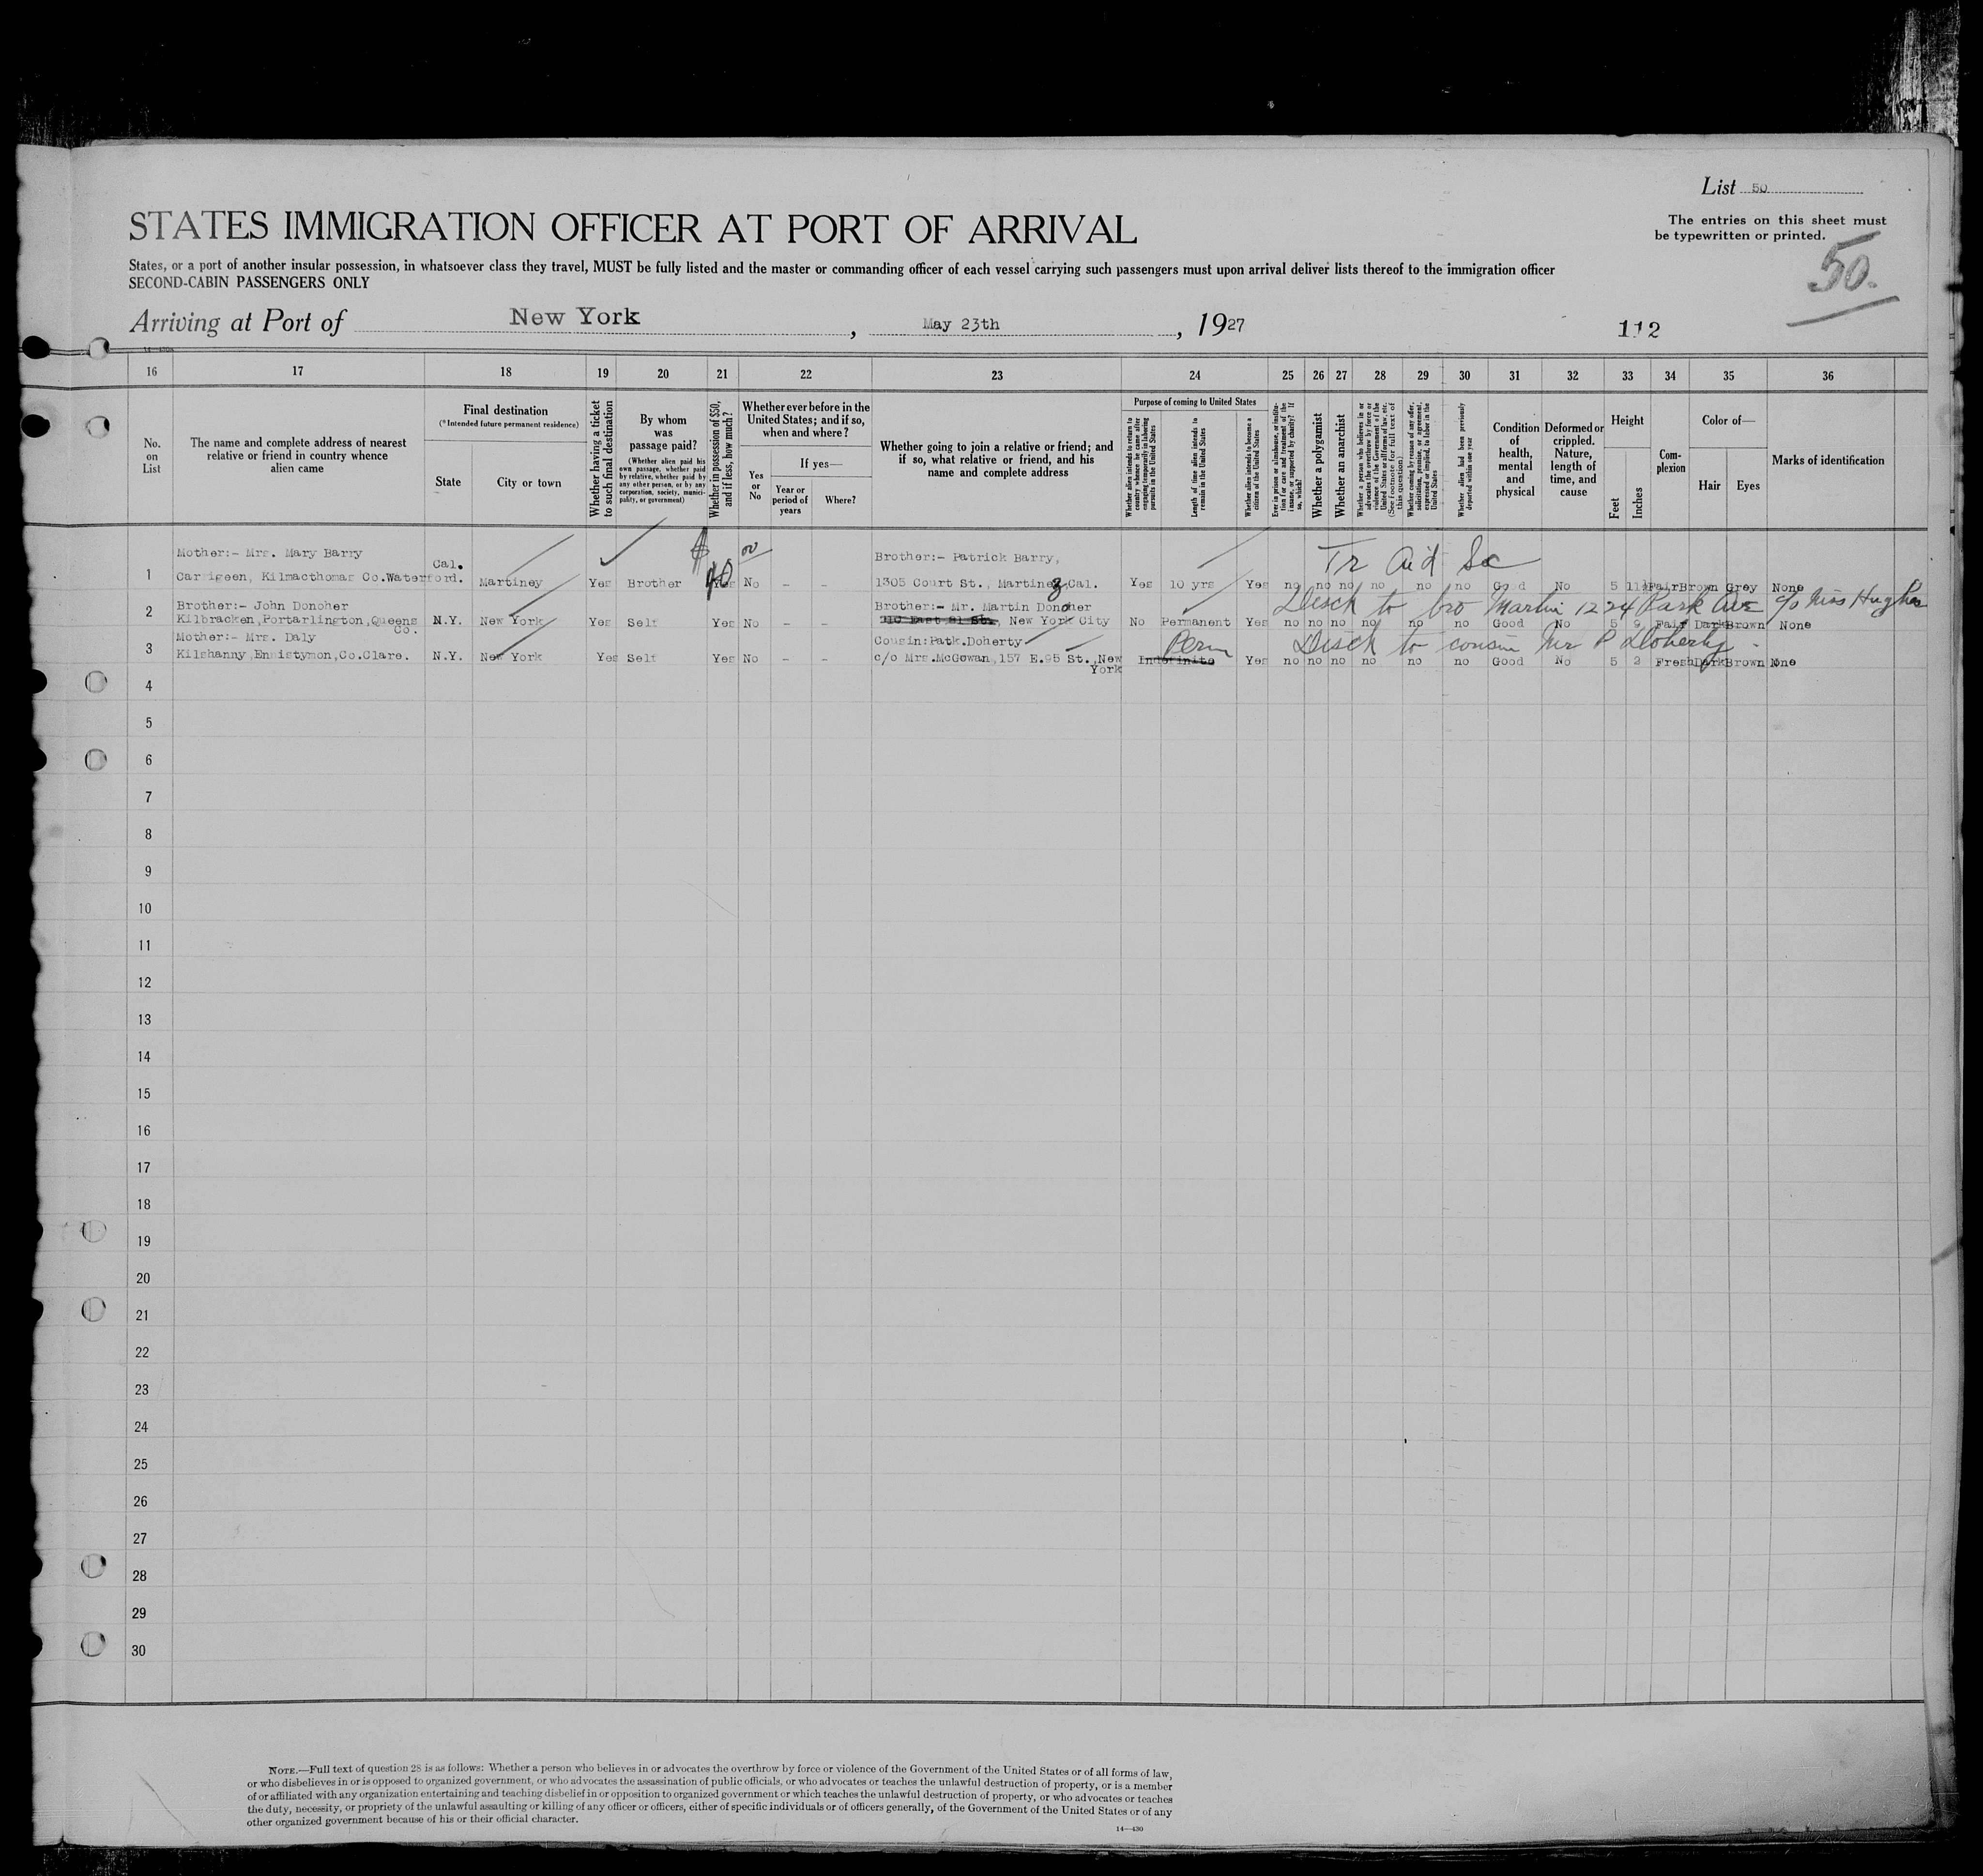 List 50
STATES IMMIGRATION OFFICER AT PORT OF ARRIVAL
The entries on this sheet must
be typewritten or printed.
States, or a port of another insular possession, in whatsoever class they travel, MUST be fully listed and the master or commanding officer of each vessel carrying such passengers must upon arrival deliver lists thereof to the immigration officer
SECOND-CABIN PASSENGERS ONLY
50.
Arriving at Port of New York, May 23th, 1927
112
16 17 18 19 20 21 22 23 24 25 26 27 28 29 30 31 32 33 34 35 36
No. on List
The name and complete address of nearest relative or friend in country whence alien came
Final destination
(*Intended future permanent residence)
State
City or town
Whether having a ticket to such final destination
By whom was passage paid?
(Whether alien paid his own passage, whether paid by relative, whether paid by any other person, or by any corporation, society, municipality, or government)
Whether in possession of $50, and if less, how much?
Whether ever before in the United States; and if so, when and where?
Yes or No
If yes—
Year or period of years
Where?
Whether going to join a relative or friend; and if so, what relative or friend, and his name and complete address
Purpose of coming to United States
Whether alien intends to return to country whence he came after engaging temporarily in laboring pursuits in the United States
Length of time alien intends to remain in the United States
Whether alien intends to become a citizen of the United States
Ever in prison or almshouse, or institution for care and treatment of the insane, or supported by charity? If so, which?
Whether a polygamist
Whether an anarchist
Whether a person who believes in or advocates the overthrow by force or violence of the Government of the United States or all forms of law, etc. (See footnote for full text of this question)
Whether coming by reason of any offer, solicitation, promise, or agreement, expressed or implied, to labor in the United States
Whether alien had been previously deported within one year
Condition of health, mental and physical
Deformed or crippled. Nature, length of time, and cause
Height
Feet
Inches
Complexion
Color of—
Hair
Eyes
Marks of identification
Mother:- Mrs. Mary Barry Cal. $ 40 00 Brother:- Patrick Barry, Tr Aid Sc
1 Carrigeen, Kilmacthomas Co.Waterford. Martiney Yes Brother Yes No - - 1305 Court St., Martinez,Cal. Yes 10 yrs Yes no no no no no no Good No 5 11½ Fair Brown Grey None
2 Brother:- John Donoher Brother:- Mr. Martin Donoher Disch to bro Martin 1224 Park Ave c/o Miss Hughes
Kilbracken,Portarlington,Queens Co. N.Y. New York Yes Self Yes No - - New York City No Permanent Yes no no no no no no Good No 5 9 Fair Dark Brown None
3 Mother:- Mrs. Daly Cousin:Patk.Doherty Perm Disch to cousin Mr P Doherty
Kilshanny,Ennistymon,Co.Clare. N.Y. New York Yes Self Yes No - - c/o Mrs.McGowan,157 E.95 St.,New York Indefinite Yes no no no no no no Good No 5 2 Fresh Dark Brown None
4
5
6
7
8
9
10
11
12
13
14
15
16
17
18
19
20
21
22
23
24
25
26
27
28
29
30
NOTE.—Full text of question 28 is as follows: Whether a person who believes in or advocates the overthrow by force or violence of the Government of the United States or of all forms of law,
or who disbelieves in or is opposed to organized government, or who advocates the assassination of public officials, or who advocates or teaches the unlawful destruction of property, or is a member
of or affiliated with any organization entertaining and teaching disbelief in or opposition to organized government or which teaches the unlawful destruction of property, or who advocates or teaches
the duty, necessity, or propriety of the unlawful assaulting or killing of any officer or officers, either of specific individuals or of officers generally, of the Government of the United States or of any
other organized government because of his or their official character.
14—430